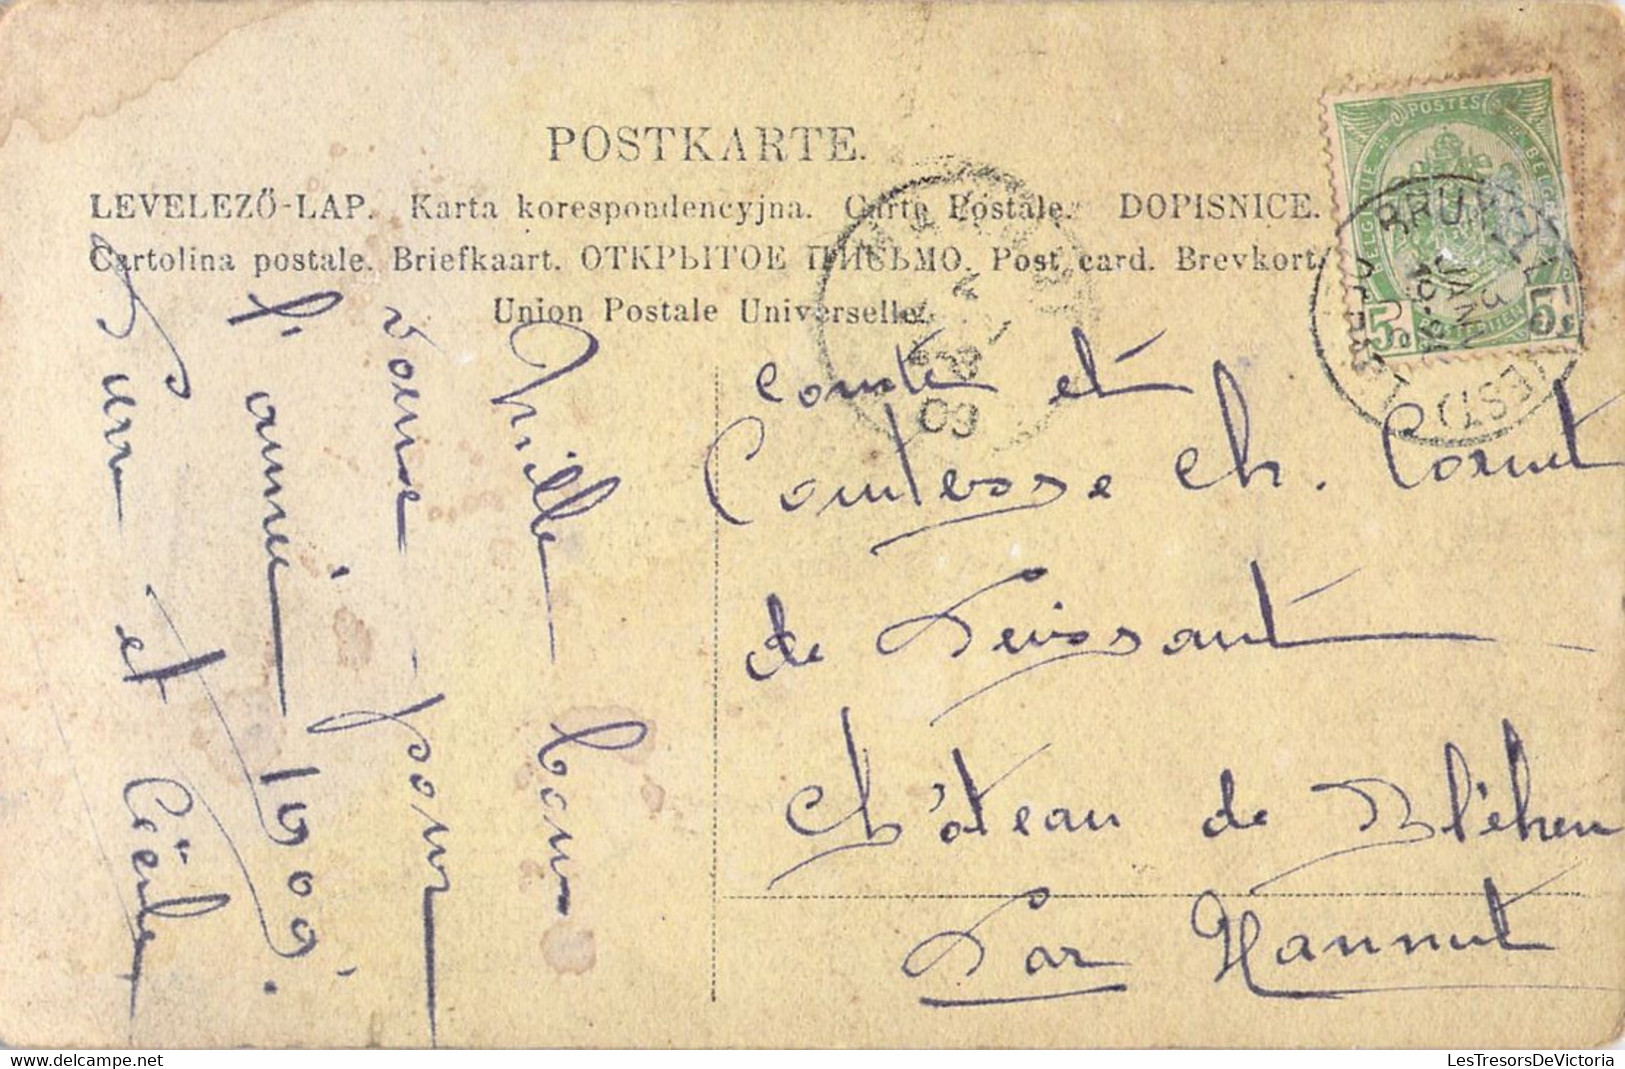 POSTKARTE.
LEVELEZŐ-LAP. Karta korespondencyjna. Carte Postale. DOPISNICE.
Cartolina postale. Briefkaart. ОТКРЫТОЕ ПИСЬМО. Post card. Brevkort.
Union Postale Universelle.
POSTES
BELGIQUE
5c
BRUXELLES
3
JANV
(EST)
09
Comte et
Comtesse Ch. Cornet
de Peissant
Château de Bléhen
Par Hannut
Mille bons
voeux pour
l'année 1909.
et Cécile
LesTresorsDeVictoria